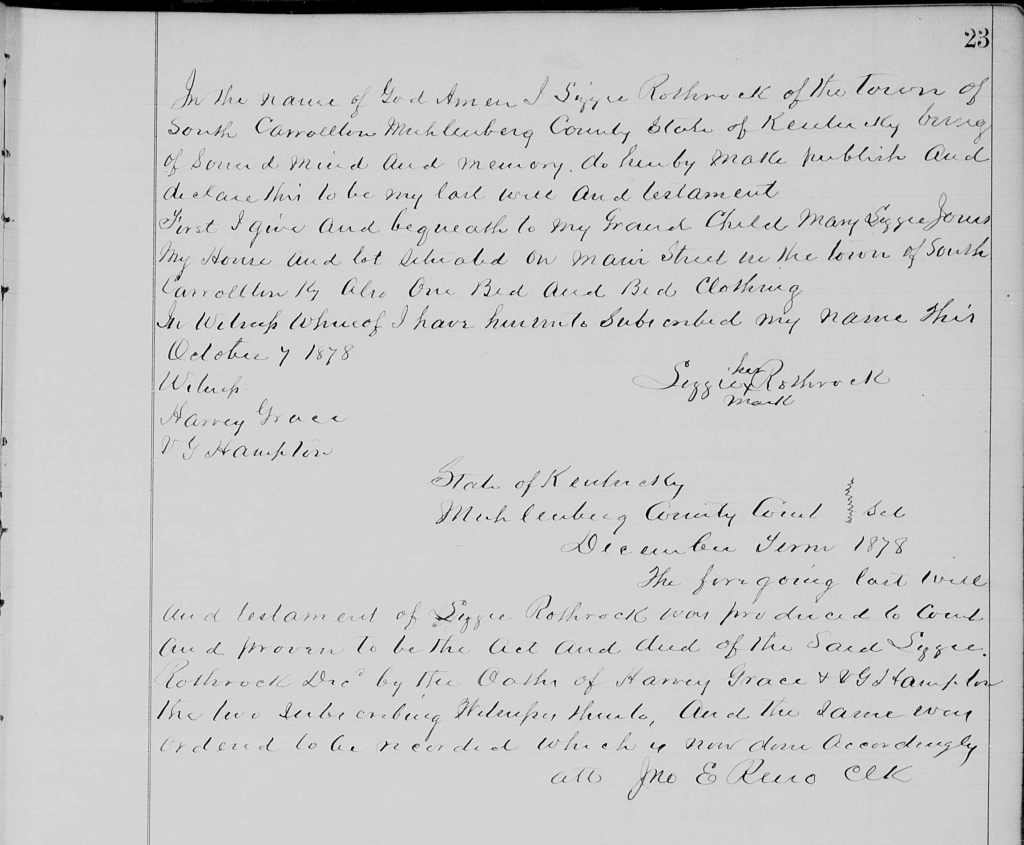 23
In the name of God Amen I Lizzie Rothrock of the town of
South Carrollton Muhlenberg County State of Kentucky being
of Sound mind and memory. do hereby make publish and
declare this to be my last will and testament
First I give and bequeath to my Grand Child Mary Lizzie Jones
My House and lot situated on main Street in the town of South
Carrollton Ky Also One Bed and Bed Clothing
In Witness Whereof I have hereunto Subscribed my name this
October 7 1878
her
Witness
Lizzie X Rothrock
mark
Harvey Grace
V G Hampton
State of Kentucky
Muhlenberg County Court Sct
December Term 1878
The foregoing last will
and testament of Lizzie Rothrock was produced to Court
and proven to be the act and deed of the Said Lizzie
Rothrock Decd by the Oaths of Harvey Grace & V G Hampton
the two Subscribing Witnesses thereto, And the Same was
ordered to be recorded which is now done accordingly
att Jno E Reno Clk